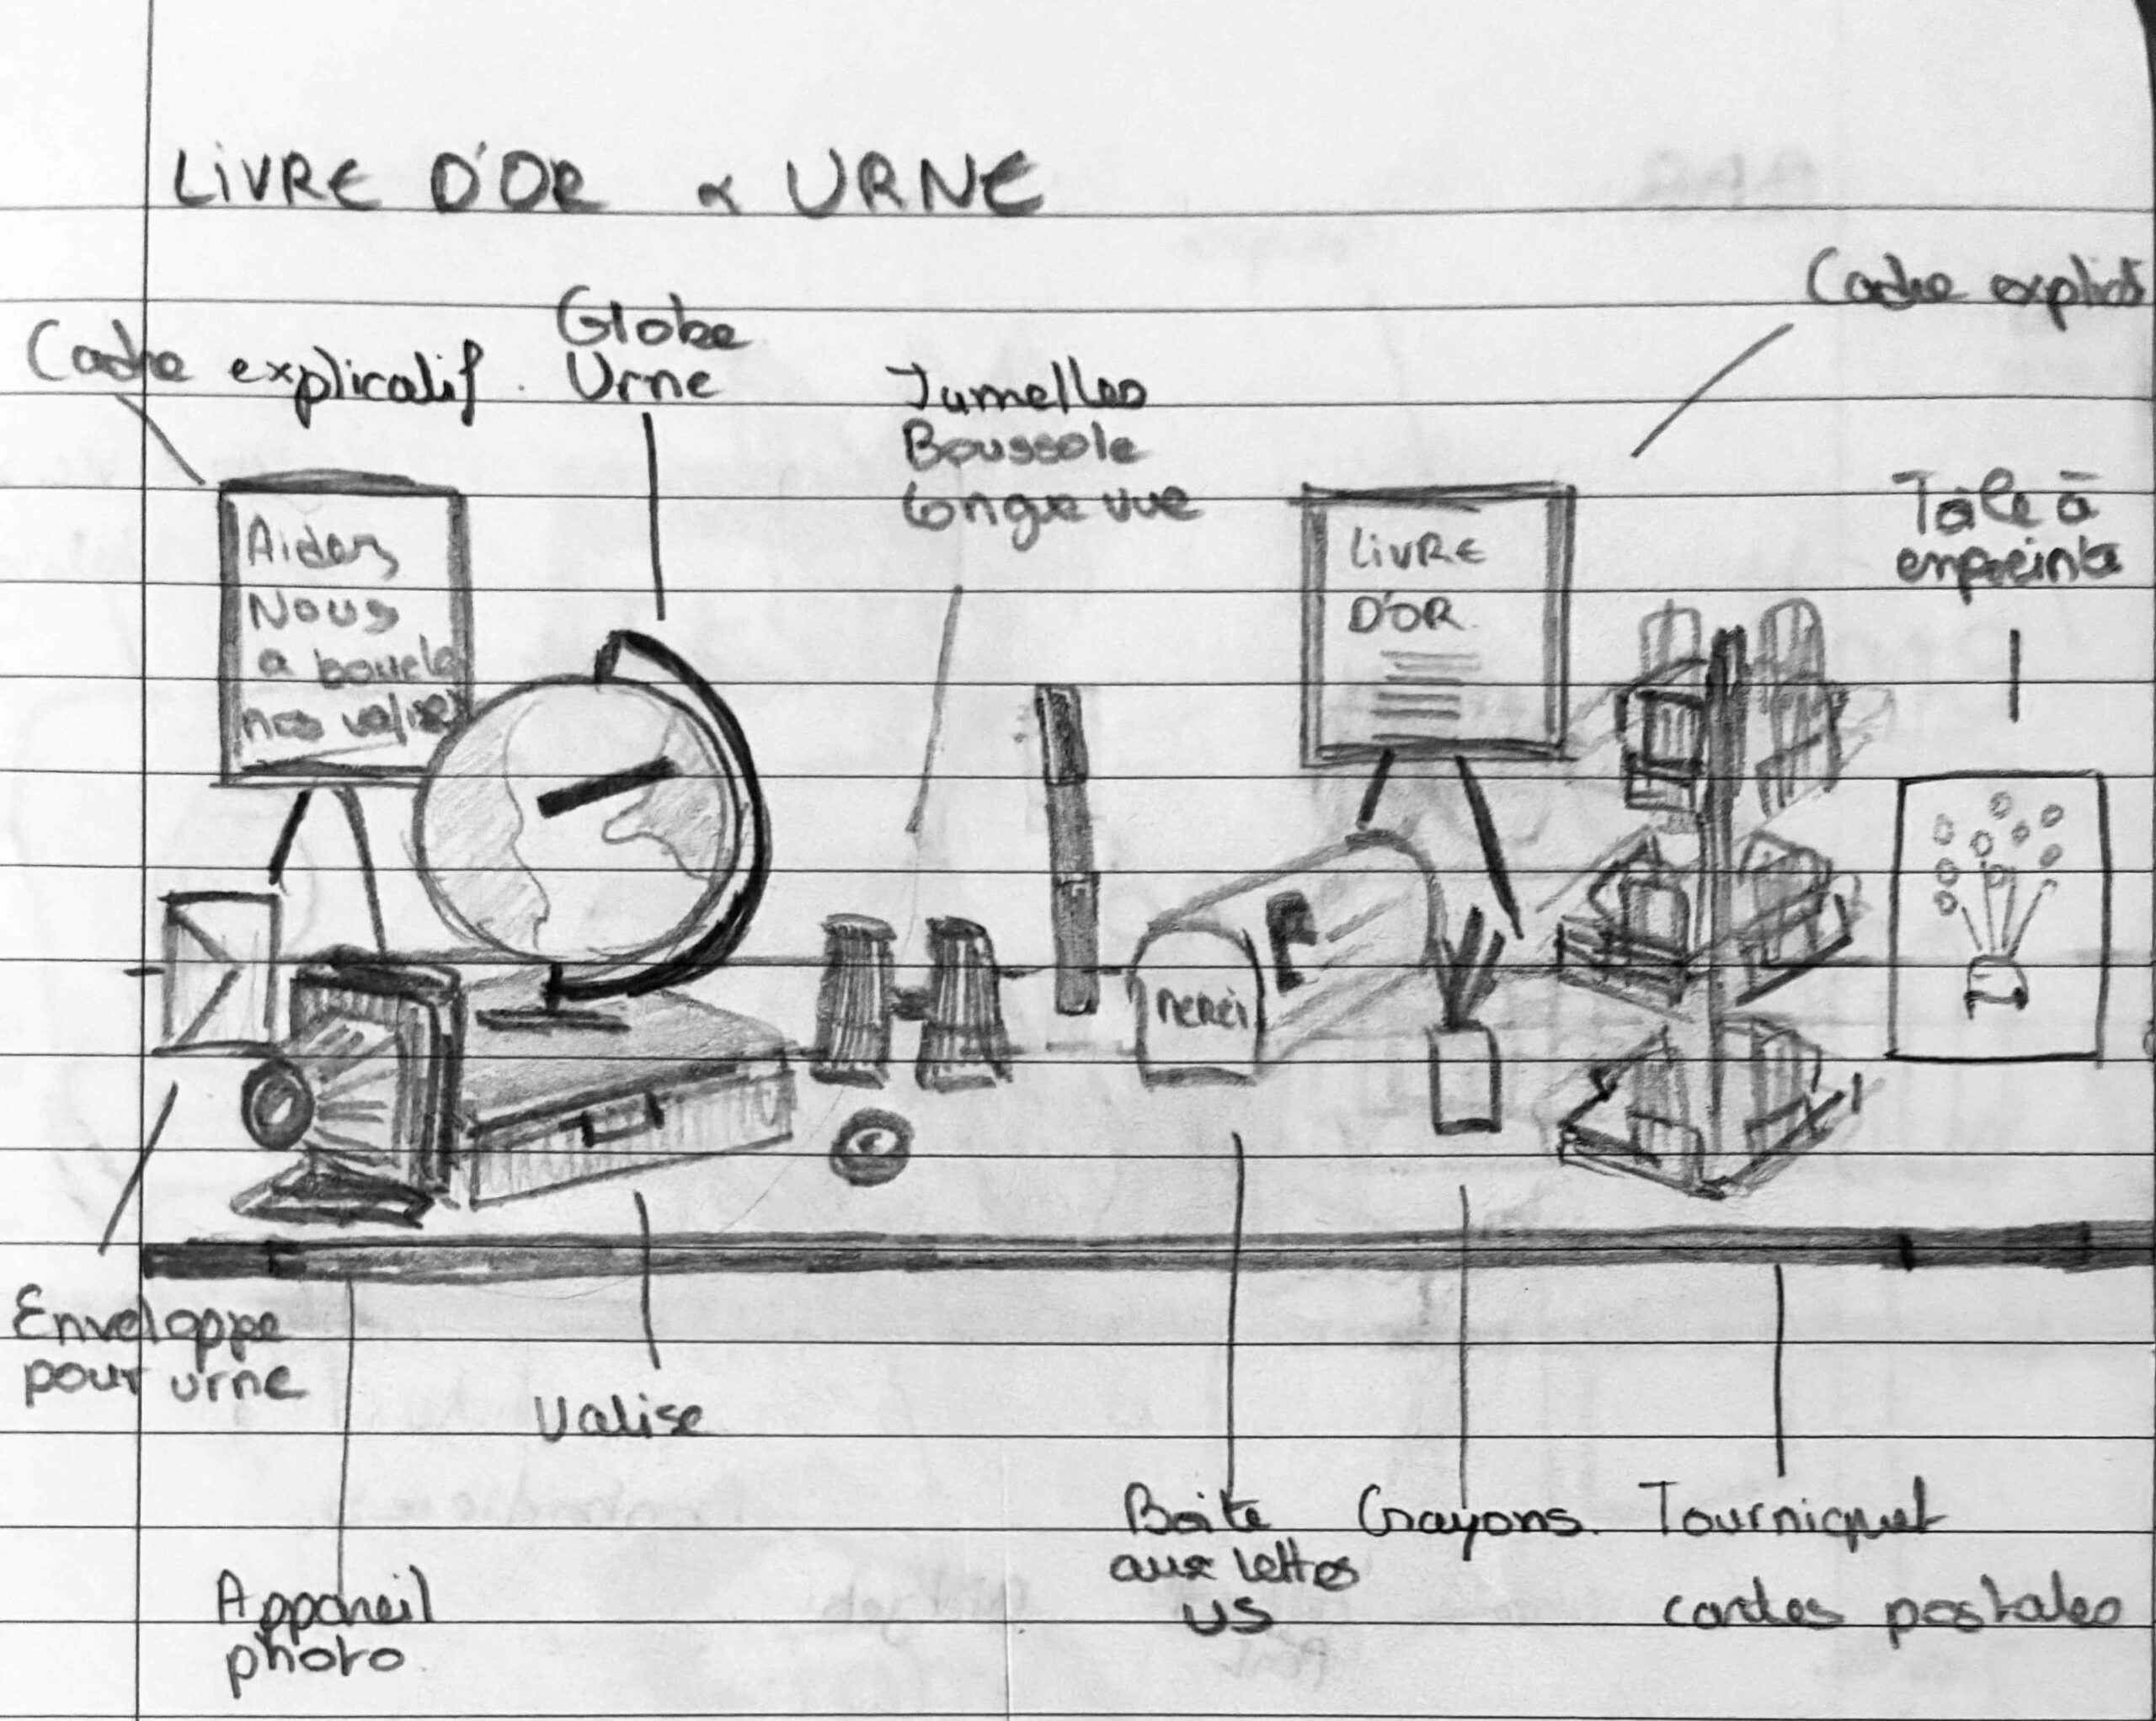 LIVRE D'OR & URNE
Cadre explicatif.
Globe
Urne
Jumelles
Boussole
Longue vue
Cadre explicatif
Toile à
empreintes
Aidez
Nous
a boucler
nos valises
LIVRE
D'OR.
MERCI
Enveloppe
pour urne
Appareil
photo.
Valise
Boite
aux lettres
US
Crayons.
Tourniquet
cartes postales